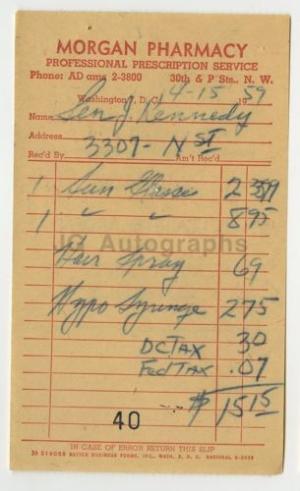 MORGAN PHARMACY
PROFESSIONAL PRESCRIPTION SERVICE
Phone: AD ams 2-3800 30th & P Sts., N. W.
Washington 7, D. C. 4-15 1959
Name Sen J. Kennedy
Address 3307 - N ST
Rec'd By Am't Rec'd
1 Sun Glasses 2 39
1 " " 8 95
JG Autographs
Hair Spray 69
Hypo Syringe 2 75
DC TAX 30
Fed TAX .07
$ 15 15
40
IN CASE OF ERROR RETURN THIS SLIP